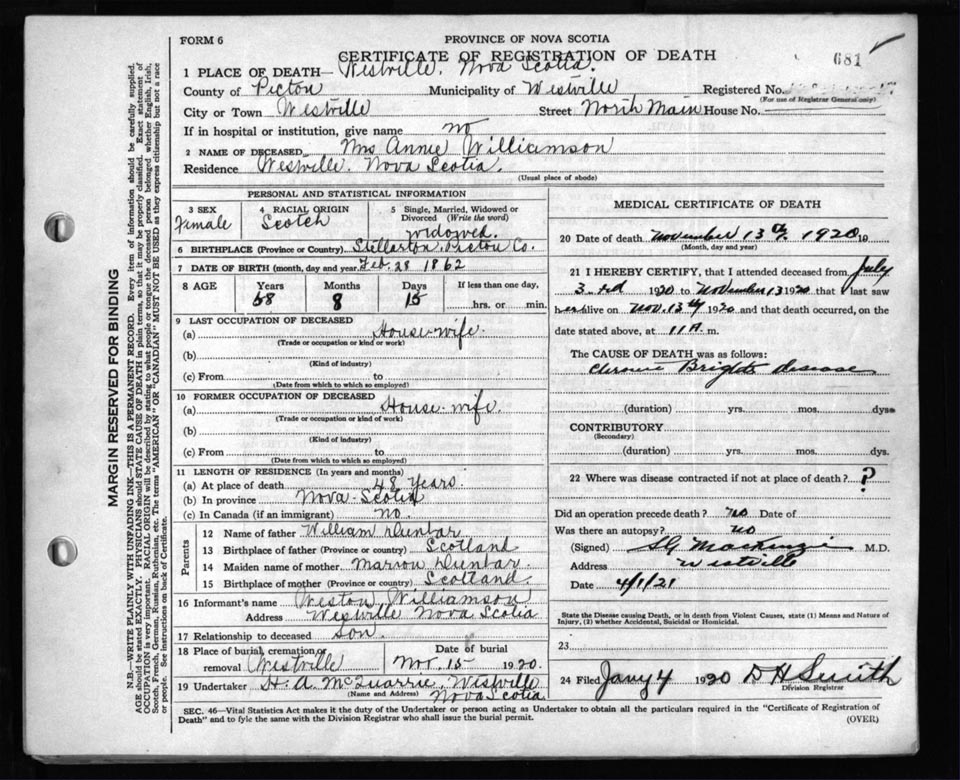 FORM 6
PROVINCE OF NOVA SCOTIA
CERTIFICATE OF REGISTRATION OF DEATH
681
1 PLACE OF DEATH— Westville. Nova Scotia.
County of Pictou Municipality of Westville Registered No.
(For use of Registrar General only)
City or Town Westville Street North Main House No.
If in hospital or institution, give name no
2 NAME OF DECEASED Mrs Annie Williamson
Residence Westville. Nova Scotia.
(Usual place of abode)
PERSONAL AND STATISTICAL INFORMATION
3 SEX
Female
4 RACIAL ORIGIN
Scotch
5 Single, Married, Widowed or
Divorced (Write the word)
widowed.
6 BIRTHPLACE (Province or Country) Stellarton. Pictou Co.
7 DATE OF BIRTH (month, day and year) Feb. 28 1862
8 AGE
Years
Months
Days
If less than one day,
68
8
15
hrs. or min.
9 LAST OCCUPATION OF DECEASED
(a) House-wife.
(Trade or occupation or kind or work)
(b)
(Kind of industry)
(c) From to
(Date from which to which so employed)
10 FORMER OCCUPATION OF DECEASED
(a) House-wife.
(Trade or occupation or kind of work)
(b)
(Kind of industry)
(c) From to
(Date from which to which so employed)
11 LENGTH OF RESIDENCE (In years and months)
(a) At place of death 48 years.
(b) In province Nova-Scotia
(c) In Canada (if an immigrant) no.
Parents
12 Name of father William Dunbar
13 Birthplace of father (Province or country) Scotland
14 Maiden name of mother Marion Dunbar
15 Birthplace of mother (Province or country) Scotland.
16 Informant's name Weston Williamson
Address Westville Nova Scotia
17 Relationship to deceased son.
18 Place of burial, cremation or
removal Westville
Date of burial
Nov. 15 1920.
19 Undertaker H. A. McQuarrie, Westville
(Name and Address) Nova Scotia
MEDICAL CERTIFICATE OF DEATH
20 Date of death November 13th. 1920 19
(Month, day and year)
21 I HEREBY CERTIFY, that I attended deceased from July
3rd 1920 to November 13 1920 that I last saw
her alive on Nov. 13th 1920 and that death occurred, on the
date stated above, at 11 A. m.
The CAUSE OF DEATH was as follows:
Chronic Brights disease
(duration) yrs. mos. dys.
CONTRIBUTORY
(Secondary)
(duration) yrs. mos. dys.
22 Where was disease contracted if not at place of death? ?
Did an operation precede death? no Date of
Was there an autopsy? no
(Signed) M.D.
Address Westville
Date 4/1/21
State the Disease causing Death, or in death from Violent Causes, state (1) Means and Nature of
Injury, (2) whether Accidental, Suicidal or Homicidal.
23
24 Filed Jany 4 1920 D H Smith
Division Registrar
SEC. 46—Vital Statistics Act makes it the duty of the Undertaker or person acting as Undertaker to obtain all the particulars required in the "Certificate of Registration of
Death" and to fyle the same with the Division Registrar who shall issue the burial permit.
(OVER)
MARGIN RESERVED FOR BINDING
N.B.—WRITE PLAINLY WITH UNFADING INK—THIS IS A PERMANENT RECORD. Every item of information should be carefully supplied.
AGE should be stated EXACTLY. PHYSICIANS should STATE CAUSE OF DEATH in plain terms, so that it may be properly classified. Exact statement of
OCCUPATION is very important. RACIAL ORIGIN will be described by stating to what people or tongue the deceased person belonged whether English, Irish,
Scotch, French, German, Russian, Ruthenian, etc. The terms "AMERICAN" or "CANADIAN" MUST NOT BE USED as they express citizenship but not a race
or people. See instructions on back of Certificate.